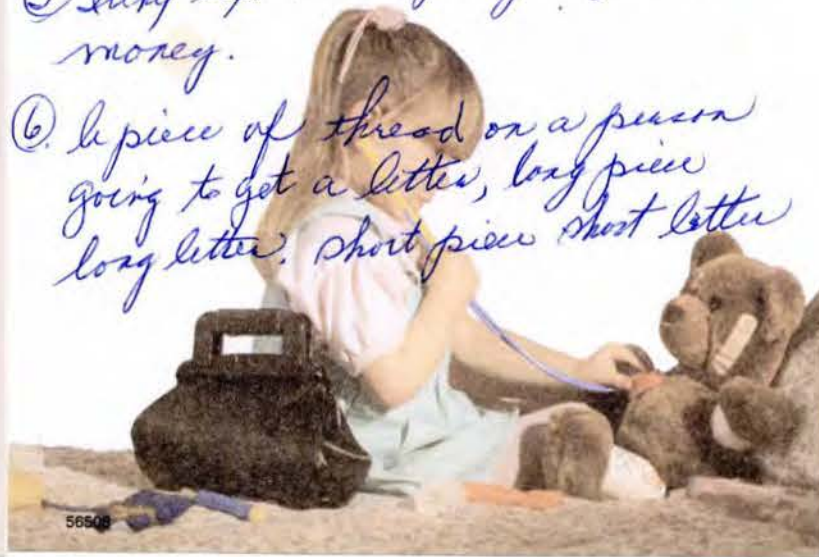 money.
6. A piece of thread on a person
going to get a letter, long piece
long letter. Short piece short letter
56508